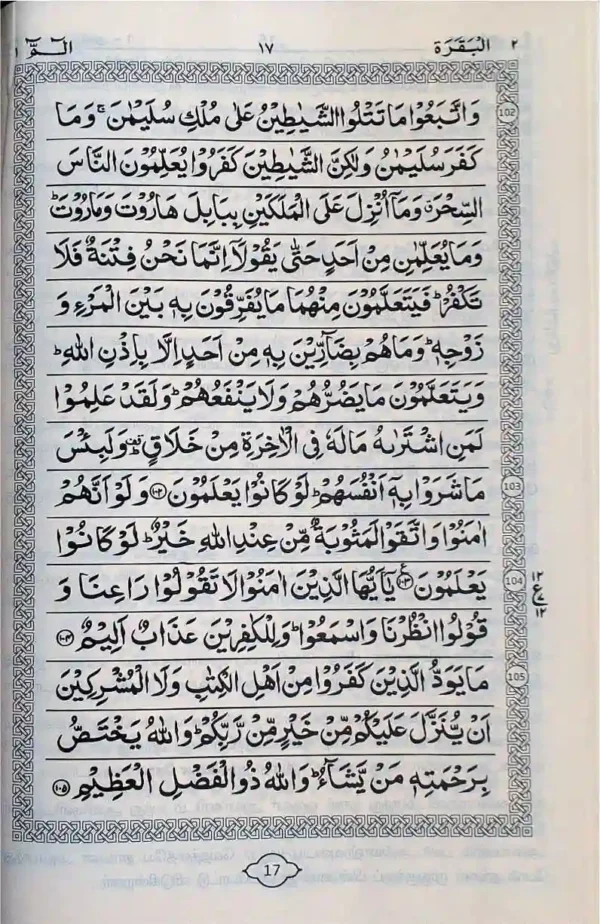 ٢ الْبَقَرَة ١٧ الٓـمّٓ ١
102 وَاتَّبَعُوْا مَا تَتْلُوا الشَّيٰطِيْنُ عَلٰى مُلْكِ سُلَيْمٰنَ ۚ وَمَا
كَفَرَ سُلَيْمٰنُ وَلٰكِنَّ الشَّيٰطِيْنَ كَفَرُوْا يُعَلِّمُوْنَ النَّاسَ
السِّحْرَ ۗ وَمَآ اُنْزِلَ عَلَى الْمَلَكَيْنِ بِبَابِلَ هَارُوْتَ وَمَارُوْتَ ؕ
وَمَا يُعَلِّمٰنِ مِنْ اَحَدٍ حَتّٰى يَقُوْلَاۤ اِنَّمَا نَحْنُ فِتْنَةٌ فَلَا
تَكْفُرْ ؕ فَيَتَعَلَّمُوْنَ مِنْهُمَا مَا يُفَرِّقُوْنَ بِهٖ بَيْنَ الْمَرْءِ وَ
زَوْجِهٖ ؕ وَمَا هُمْ بِضَآرِّيْنَ بِهٖ مِنْ اَحَدٍ اِلَّا بِاِذْنِ اللّٰهِ ؕ
وَيَتَعَلَّمُوْنَ مَا يَضُرُّهُمْ وَلَا يَنْفَعُهُمْ ؕ وَلَقَدْ عَلِمُوْا
لَمَنِ اشْتَرٰىهُ مَا لَهٗ فِى الْاٰخِرَةِ مِنْ خَلَاقٍ ؕ وَلَبِئْسَ
103 مَا شَرَوْا بِهٖۤ اَنْفُسَهُمْ ؕ لَوْ كَانُوْا يَعْلَمُوْنَ ۝١٠٢ وَلَوْ اَنَّهُمْ
اٰمَنُوْا وَاتَّقَوْا لَمَثُوْبَةٌ مِّنْ عِنْدِ اللّٰهِ خَيْرٌ ؕ لَوْ كَانُوْا
104 يَعْلَمُوْنَ ۝١٠٣ يٰۤاَيُّهَا الَّذِيْنَ اٰمَنُوْا لَا تَقُوْلُوْا رَاعِنَا وَ ١٢ ع ١٢
قُوْلُوا انْظُرْنَا وَاسْمَعُوْا ؕ وَلِلْكٰفِرِيْنَ عَذَابٌ اَلِيْمٌ ۝١٠٤
105 مَا يَوَدُّ الَّذِيْنَ كَفَرُوْا مِنْ اَهْلِ الْكِتٰبِ وَلَا الْمُشْرِكِيْنَ
اَنْ يُّنَزَّلَ عَلَيْكُمْ مِّنْ خَيْرٍ مِّنْ رَّبِّكُمْ ؕ وَاللّٰهُ يَخْتَصُّ
بِرَحْمَتِهٖ مَنْ يَّشَآءُ ؕ وَاللّٰهُ ذُو الْفَضْلِ الْعَظِيْمِ ۝١٠٥
17